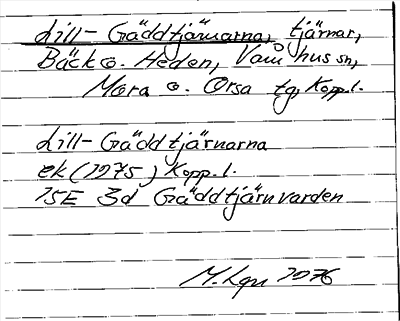 Lill-Gäddtjärnarna, tjärnar,
Bäck o. Heden, Våmhus sn,
Mora o. Orsa tg, Kopp. l.
Lill-Gäddtjärnarna
ek (1975) Kopp. l.
15E 3d Gäddtjärnvarden
M. Kgn 1976